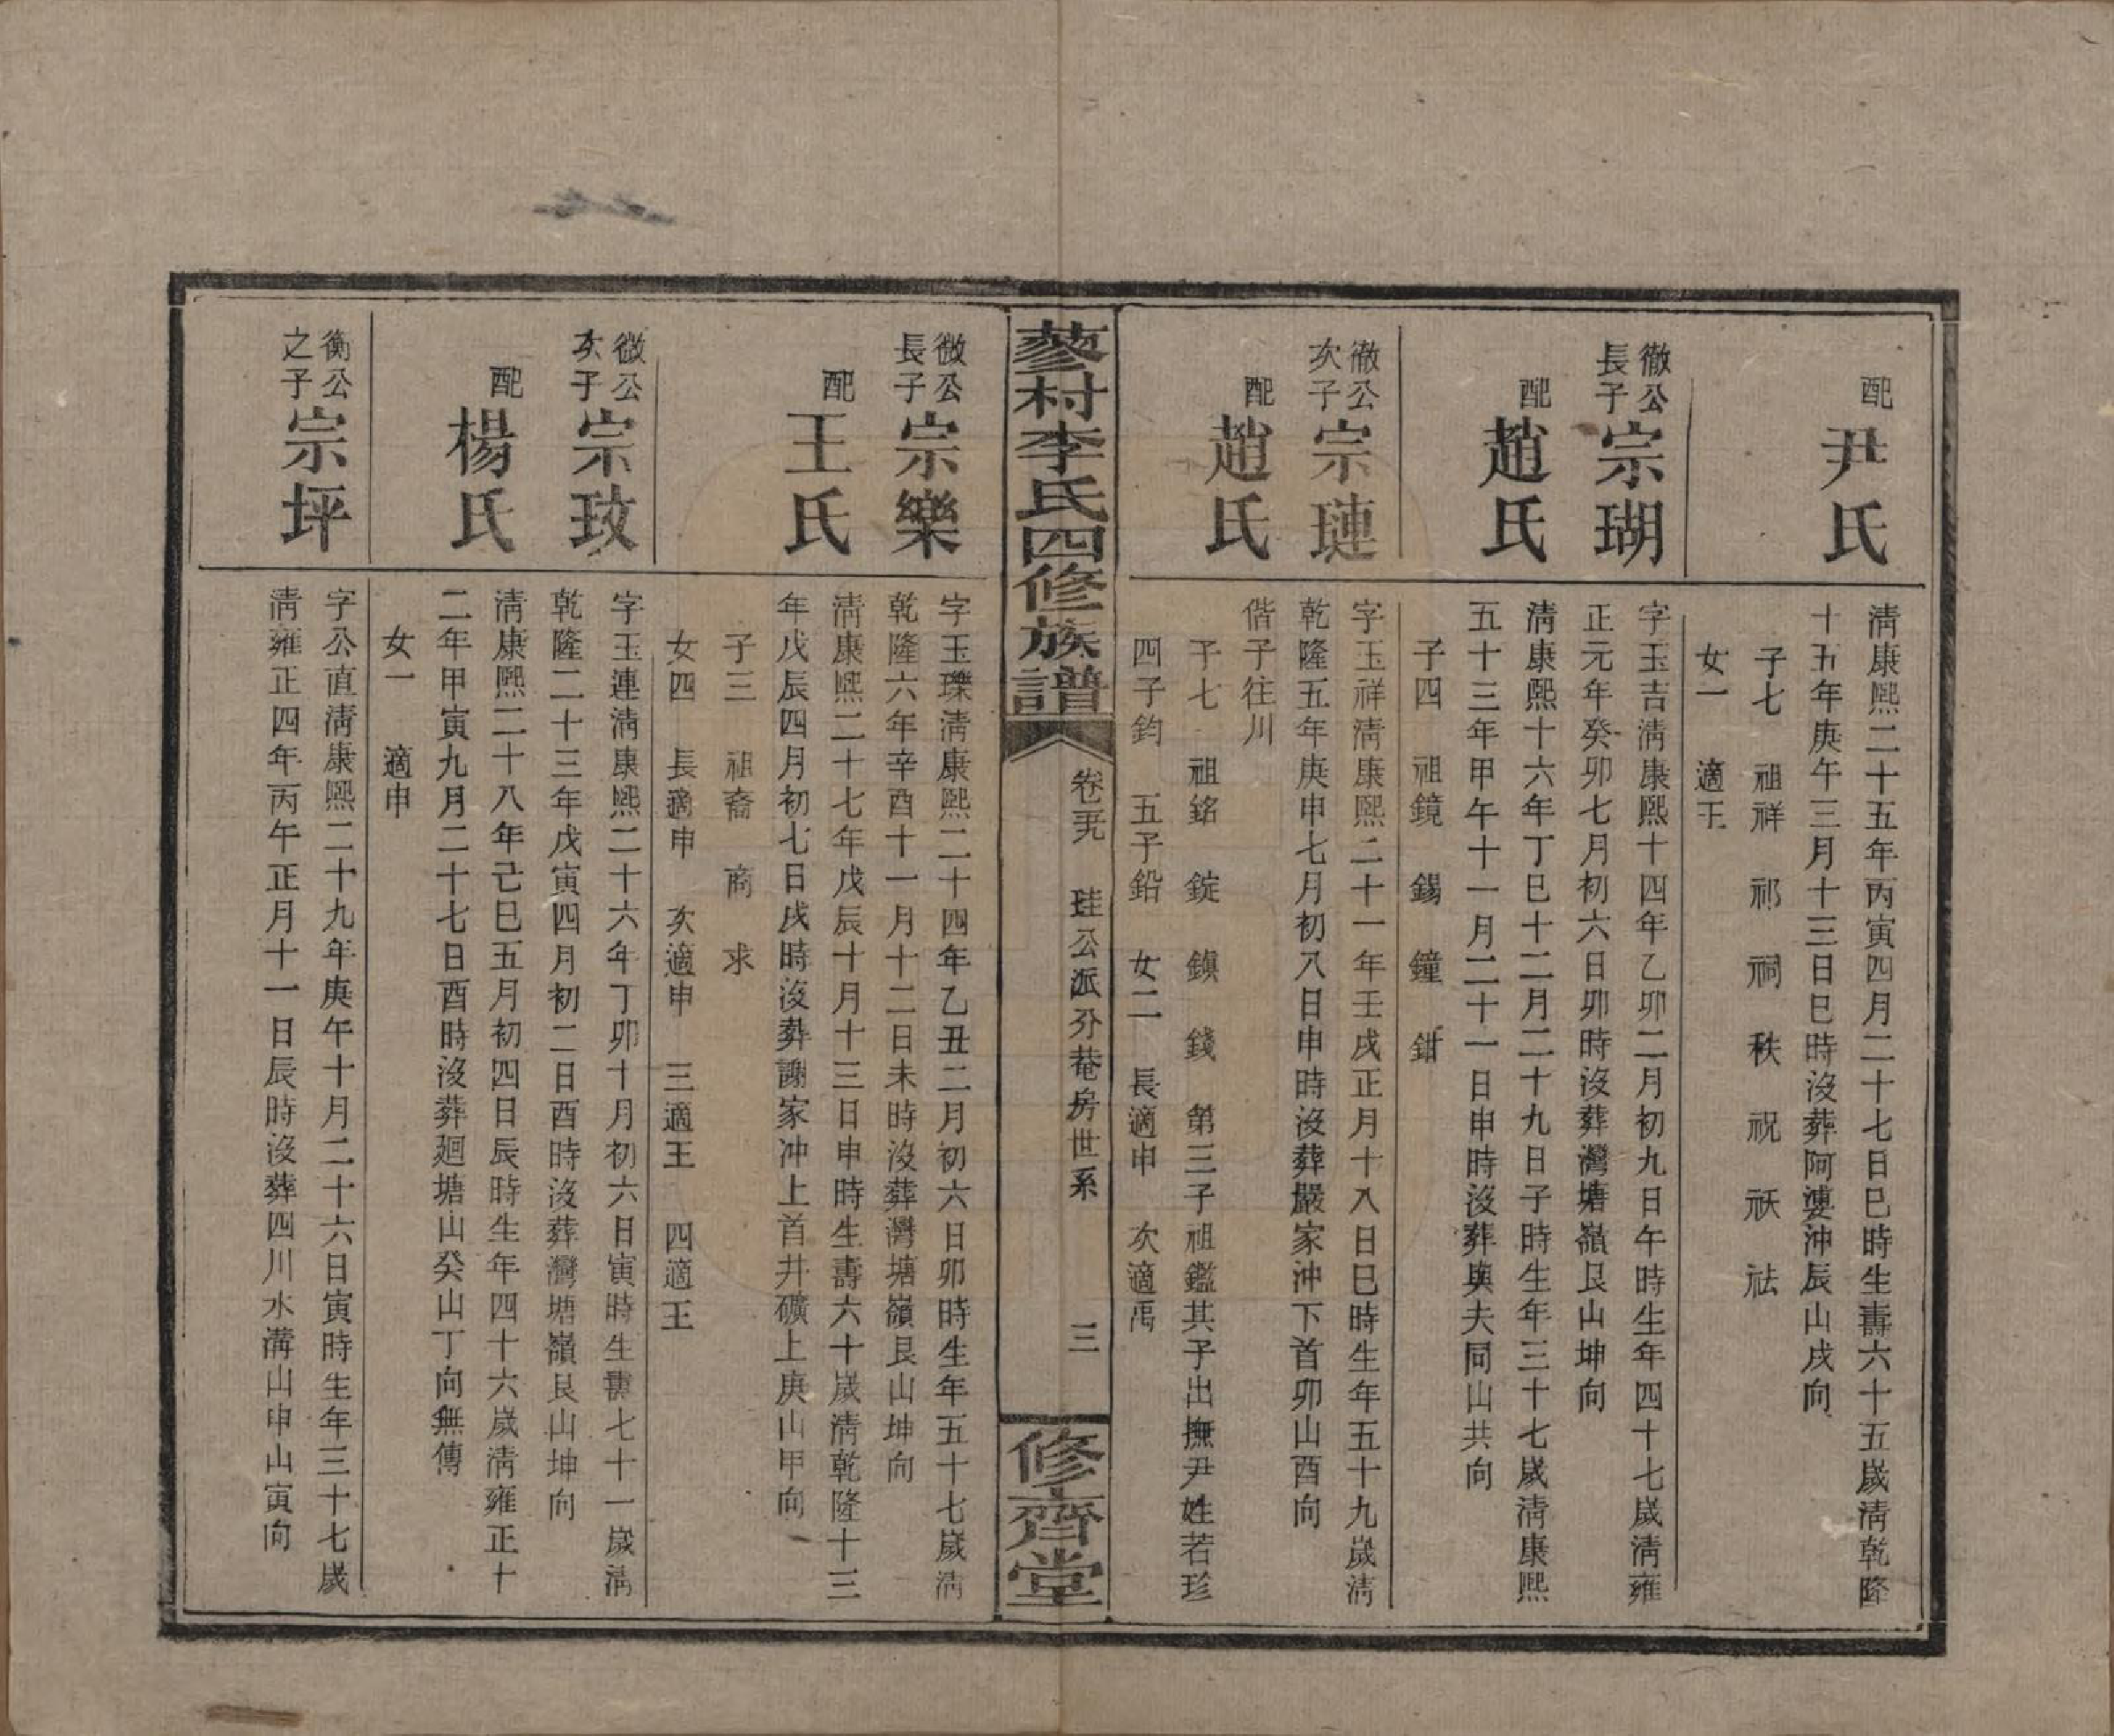 配
尹氏
淸康熙二十五年丙寅四月二十七日巳時生壽六十五歲淸乾隆
十五年庚午三月十三日巳時沒葬阿婆沖辰山戌向
子七　祖祥　祁　祠　秩　祝　祆　祛
女一　適王
徹公
長子
宗瑚
字玉吉淸康熙十四年乙卯二月初九日午時生年四十七歲淸雍
正元年癸卯七月初六日卯時沒葬灣塘嶺艮山坤向
配
趙氏
淸康熙十六年丁巳十二月二十九日子時生年三十七歲淸康熙
五十三年甲午十一月二十一日申時沒葬與夫同山共向
子四　祖鏡　錫　鐘　鉗
徹公
次子
宗璉
字玉祥淸康熙二十一年壬戌正月十八日巳時生年五十九歲淸
乾隆五年庚申七月初八日申時沒葬嚴家沖下首卯山酉向
配
趙氏
偕子往川
子七　祖銘　錠　鎭　錢　第三子祖鑑其子出撫尹姓若珍
四子鈞　五子鉛　女二　長適申　次適禹
蓼村李氏四修族譜
卷五　珪公派分菴房世系　三
修齊堂
微公
長子
宗樂
字玉瓅淸康熙二十四年乙丑二月初六日卯時生年五十七歲淸
乾隆六年辛酉十一月十二日未時沒葬灣塘嶺艮山坤向
配
王氏
淸康熙二十七年戊辰十月十三日申時生壽六十歲淸乾隆十三
年戊辰四月初七日戌時沒葬謝家沖上首井礦上庚山甲向
子三　祖裔　商　求
女四　長適申　次適申　三適王　四適王
微公
次子
宗玟
字玉連淸康熙二十六年丁卯十月初六日寅時生壽七十一歲淸
乾隆二十三年戊寅四月初二日酉時沒葬灣塘嶺艮山坤向
配
楊氏
淸康熙二十八年己巳五月初四日辰時生年四十六歲淸雍正十
二年甲寅九月二十七日酉時沒葬廻塘山癸山丁向無傳
女一　適申
衡公
之子
宗坪
字公直淸康熙二十九年庚午十月二十六日寅時生年三十七歲
淸雍正四年丙午正月十一日辰時沒葬四川水溝山申山寅向